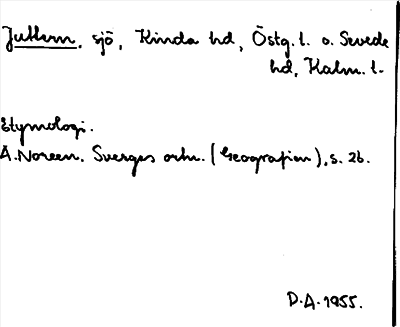 Juttern, sjö, Kinda hd, Östg. l. o. Sevede
hd, Kalm. l.
Etymologi.
A. Noreen, Sverges ortn. (Geografien), s. 26.
D. A. 1955.